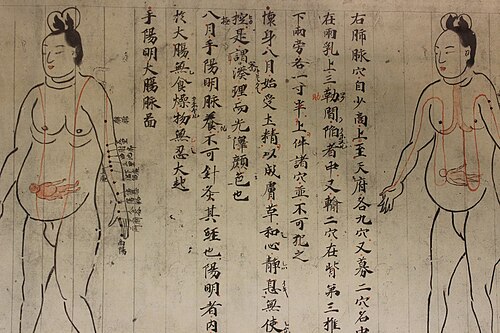 右肺脉穴自少商上至天府各九穴又募二穴名中
在兩乳上三勒間陷者中又輸二穴在背第三推
下兩旁各一寸半上件諸穴並不可犯之
懷身八月始受土精以成膚革和心静息無使
控是謂湊理而光澤顔色也
八月手陽明脉養不可針灸其經也陽明者内
於大腸無食燥物無忍大起
手陽明大腸脉圖